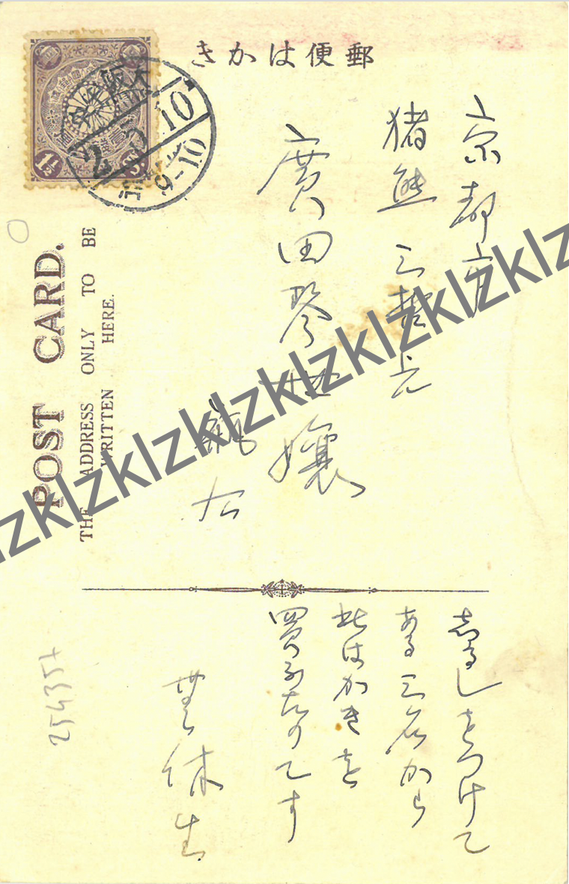 きかは便郵
POST CARD.
THE ADDRESS ONLY TO BE
WRITTEN HERE.
1½
10
9-10
京都市
猪熊三
廣田琴
嬢
しるしをつけて
ある三名から
此はかきを
買ふたのです
休生
25435+
zklzklzklzklzklzklzklzklz